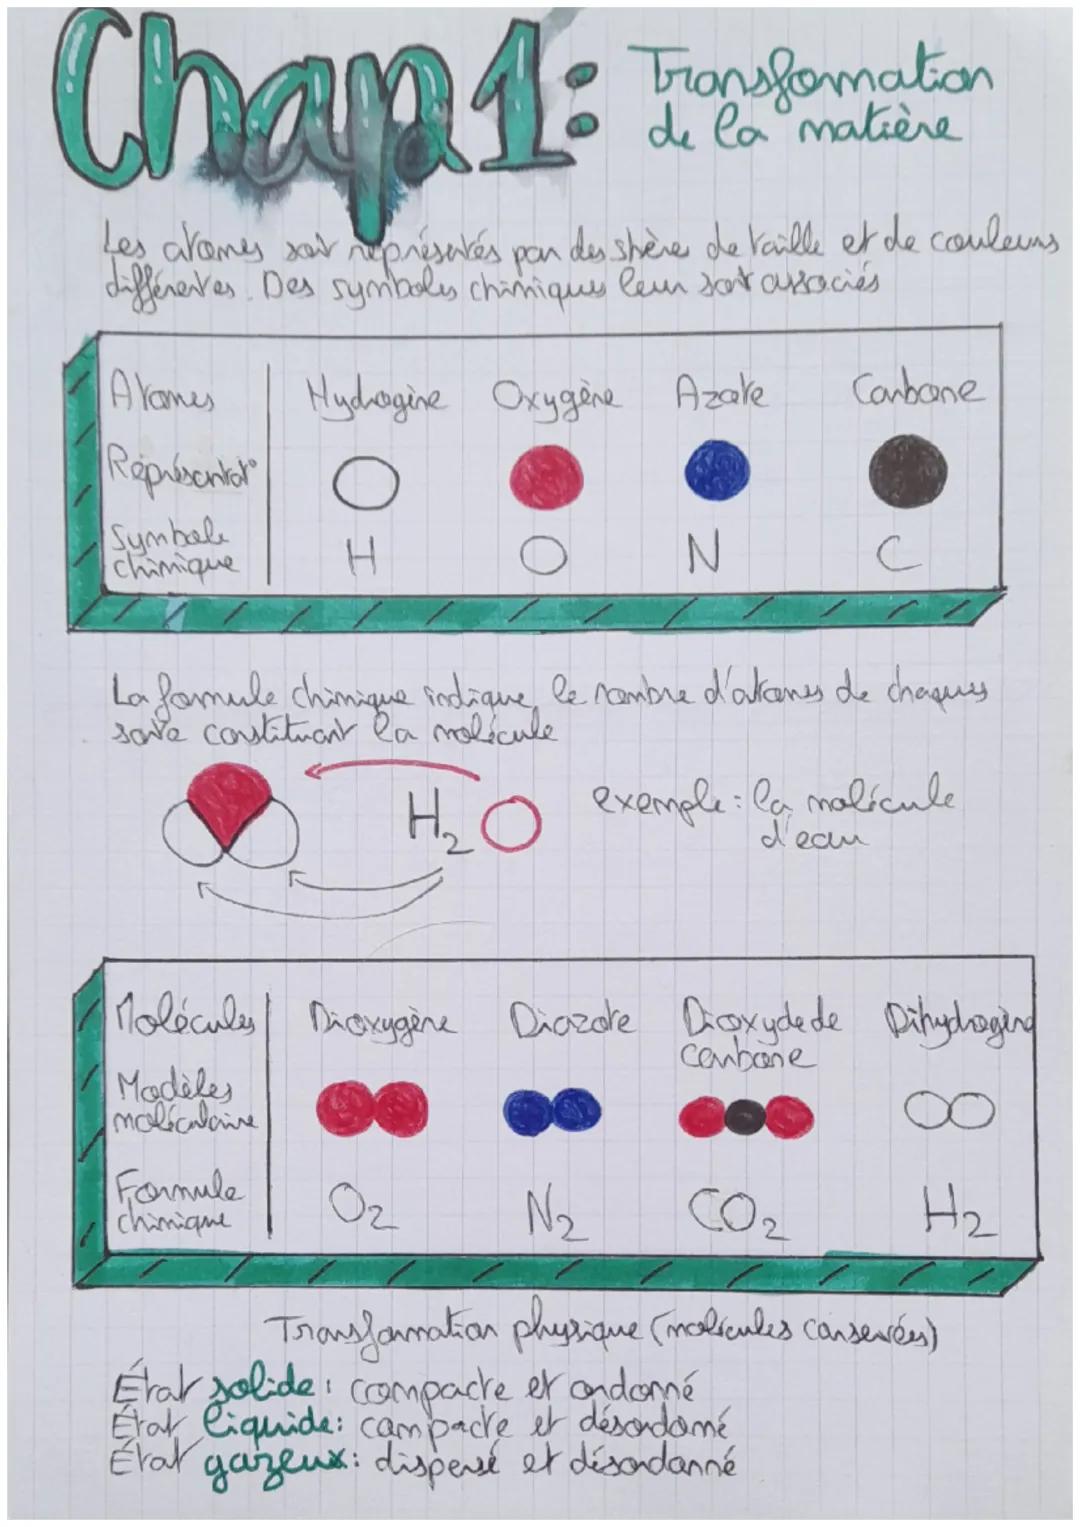 Chap 1: Transformation
de la matière
Les atomes sont représentés par des shère de taille et de couleurs
différentes. Des symboles chimiques leur sont associés
Atomes Hydrogène Oxygène Azote Carbone
Représentat°
Symbole
chimique H O N C
La formule chimique indique le nombre d'atomes de chaques
sorte constituant la molécule
H2O exemple: la molécule
d'eau
Molécules Dioxygène Diazote Dioxyde de
carbone Dihydrogène
Modèles
moléculaire
Formule
chimique O2 N2 CO2 H2
Transformation physique (molécules conservées)
État solide: compacte et ordonné
État liquide: compacte et désordonné
État gazeux: dispersé et désordonné